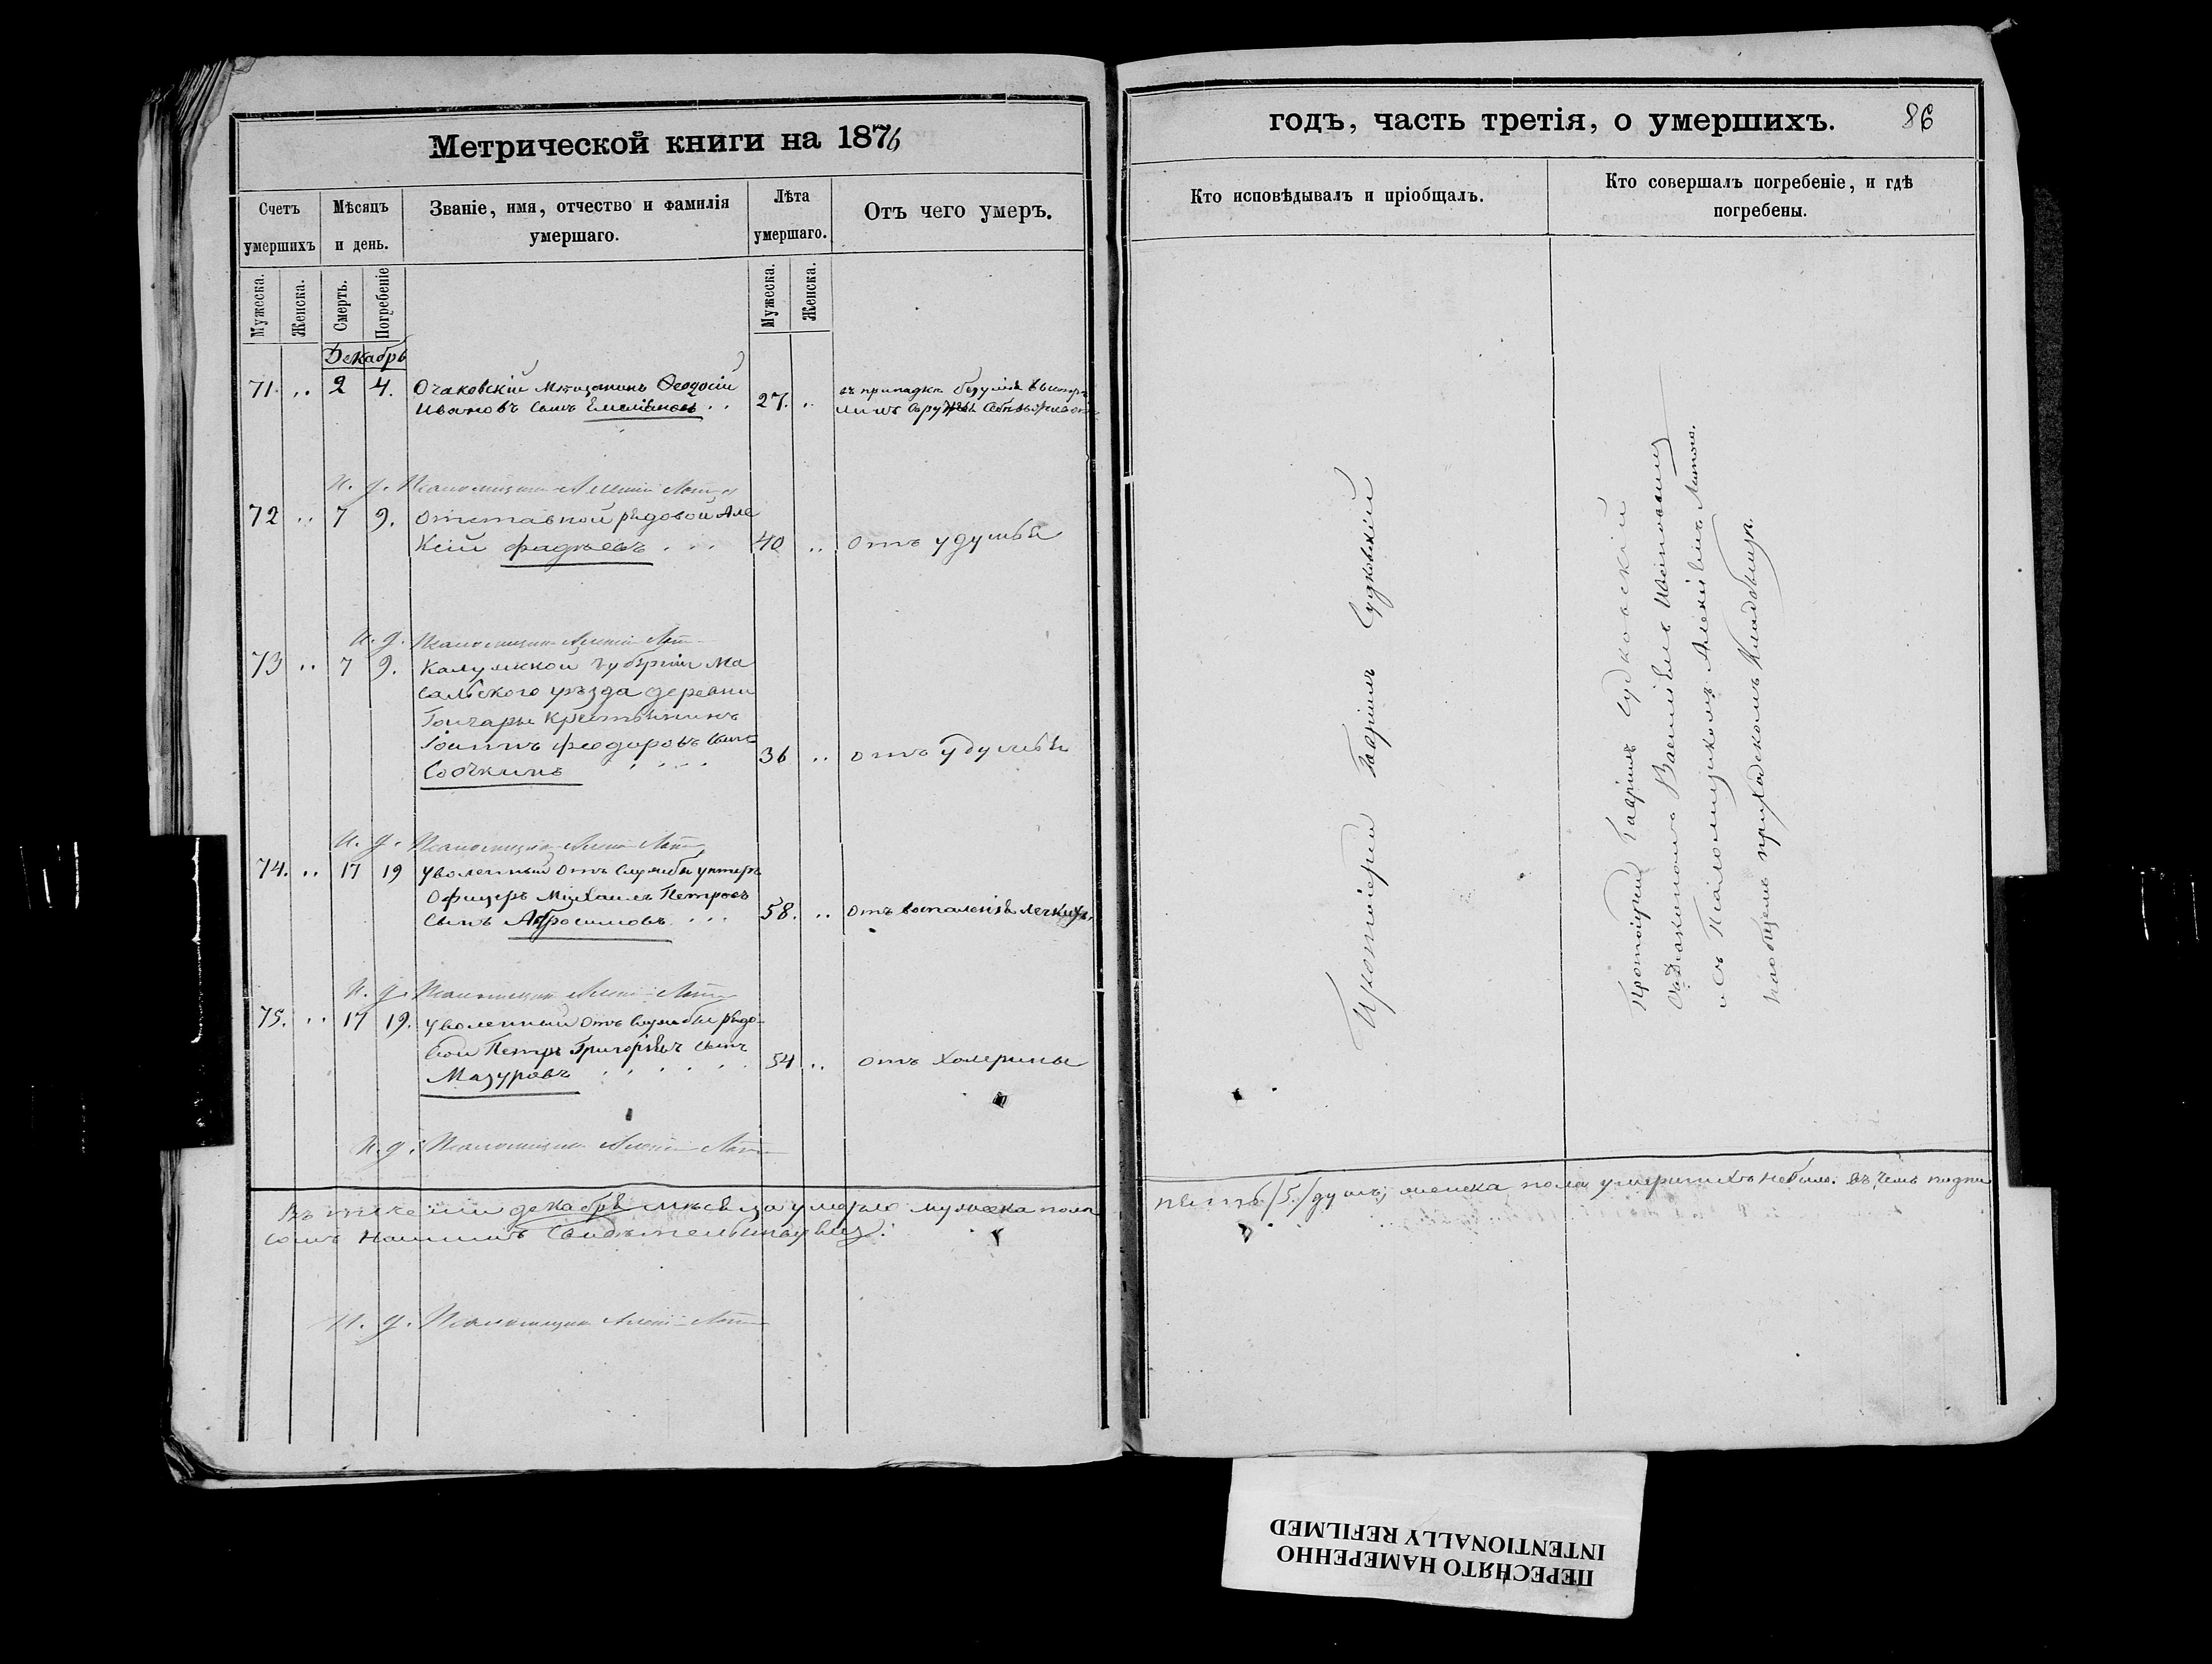 Метрической книги на 1876
Счетъ умершихъ
Мѣсяцъ и день.
Званіе, имя, отчество и фамилія умершаго.
Лѣта умершаго.
Отъ чего умеръ.
Мужеска.
Женска.
Смерть.
Погребеніе
Мужеска.
Женска.
Декабрь
71. .. 2 4. Очаковскій Мѣщанинъ Ѳеодосій
Ивановъ сынъ Емеліановъ .. 27. ..
въ припадкѣ безумія выстрѣ
И. д. Псаломщика Алексій
72 .. 7 9. Отставной рядовой Але
ксій Фадѣевъ . . . 40 .. отъ удушья
И. д. Псаломщика Алексій
73 .. 7 9. Калужской губерніи Ма
сальского уѣзда деревни
Гончары крестьянинъ
Іоаннъ Феодоровъ сынъ
36 .. отъ удушья
И. д. Псаломщика Алексій
74. .. 17 19 уволенный отъ службы унтеръ
офицеръ Михаилъ Петровъ
сынъ Абросимовъ . . . 58. .. отъ воспаленія легкихъ
И. д. Псаломщика Алексій
75. .. 17 19. уволенный отъ службы рядо-
вой Петръ Григоріевъ сынъ
Мазуровъ . . . . . . 54 .. отъ холерины
И. д. Псаломщика Алексій
Въ теченіи декабря мѣсяца умерло мужеска пола
сомъ нашимъ свидѣтельствуемъ.
И. д. Псаломщика Алексій
годъ, часть третія, о умершихъ. 86
Кто исповѣдывалъ и пріобщалъ.
Кто совершалъ погребеніе, и гдѣ погребены.
Протоіерей Гавріилъ Судковскій
Протоіерей Гавріилъ Судковскій
съ Діакономъ Василіемъ
и съ Псаломщикомъ Алексіемъ
на общемъ приходскомъ кладбищѣ.
пять /5/ душъ; женска пола умершихъ небыло. въ чемъ подпи
ПЕРЕСНЯТО НАМЕРЕННО
INTENTIONALLY REFILMED